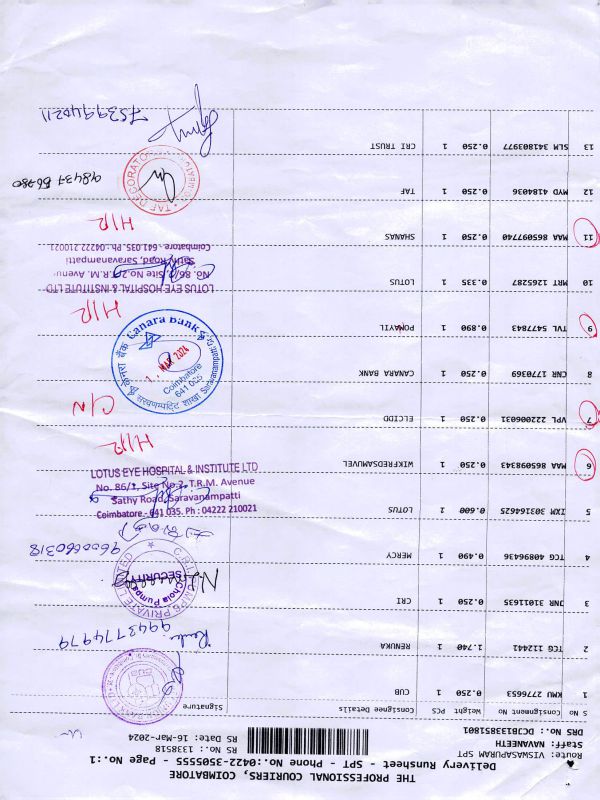 THE PROFESSIONAL COURIERS, COIMBATORE
Delivery Runsheet - SPT - Phone No.:0422-3505555 - Page No.:1
Route: VISWASAPURAM SPT
Staff: NAVANEETH
DRS No.: DCJB133851801
RS No.: 138518
RS Date: 16-Mar-2024
S No Consignment No Weight PCS Consignee Details Signature
1 KMU 2776653 0.250 1 CUB
2 TCG 112441 1.740 1 RENUKA
9943774979
3 JNR 31011635 0.250 1 CRI
SECURITY
Chola Pumps
4 TCG 40896436 0.490 1 MERCY
9600660318
5 IXM 303164625 0.600 1 LOTUS
LOTUS EYE HOSPITAL & INSTITUTE LTD
No. 86/1, Site No.2, T.R.M. Avenue
Sathy Road, Saravanampatti
Coimbatore - 641 035. Ph : 04222 210021
6 MAA 865098343 0.250 1 WIKFREDSAMUVEL
H/R
7 VPL 222006031 0.250 1 ELCIDD
C/N
8 CNR 1770369 0.250 1 CANARA BANK
Canara Bank
केनरा बैंक
MAR 2024
Coimbatore
641 035
9 TVL 5477843 0.890 1 PONAVIL
H/R
10 MRT 1265287 0.335 1 LOTUS
LOTUS EYE HOSPITAL & INSTITUTE LTD
No. 86/1, Site No.2, T.R.M. Avenue
Sathy Road, Saravanampatti
Coimbatore - 641 035. Ph : 04222 210021
11 MAA 865097740 0.250 1 SHANAS
H/R
12 MYD 4184036 0.250 1 TAF
TAF DECORATO
13 SLM 341803977 0.250 1 CRI TRUST